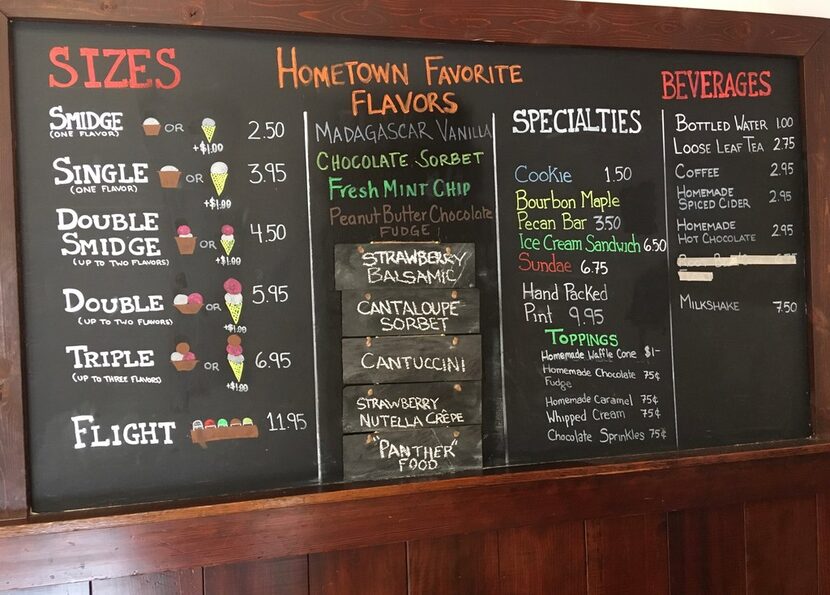 SIZES
SMIDGE OR 2.50
(ONE FLAVOR)
+$1.00
SINGLE OR 3.95
(ONE FLAVOR)
+$1.00
DOUBLE
SMIDGE OR 4.50
(UP TO TWO FLAVORS)
+$1.00
DOUBLE OR 5.95
(UP TO TWO FLAVORS)
+$1.00
TRIPLE OR 6.95
(UP TO THREE FLAVORS)
+$1.00
FLIGHT 11.95
HOMETOWN FAVORITE
FLAVORS
MADAGASCAR VANILLA
CHOCOLATE SORBET
Fresh MINT CHIP
PEANUT BUTTER CHOCOLATE
FUDGE
STRAWBERRY
BALSAMIC
CANTALOUPE
SORBET
CANTUCCINI
STRAWBERRY
NUTELLA CRÊPE
"PANTHER"
FOOD
SPECIALTIES
Cookie 1.50
Bourbon Maple
Pecan Bar 3.50
Ice Cream Sandwich 6.50
Sundae 6.75
Hand Packed
Pint 9.95
TOPPINGS
Homemade Waffle Cone $1-
Homemade Chocolate 75¢
Fudge
Homemade Caramel 75¢
Whipped Cream 75¢
Chocolate Sprinkles 75¢
BEVERAGES
BOTTLED WATER 1.00
LOOSE LEAF TEA 2.75
COFFEE 2.95
HOMEMADE
SPICED CIDER 2.95
HOMEMADE
HOT CHOCOLATE 2.95
MILKSHAKE 7.50